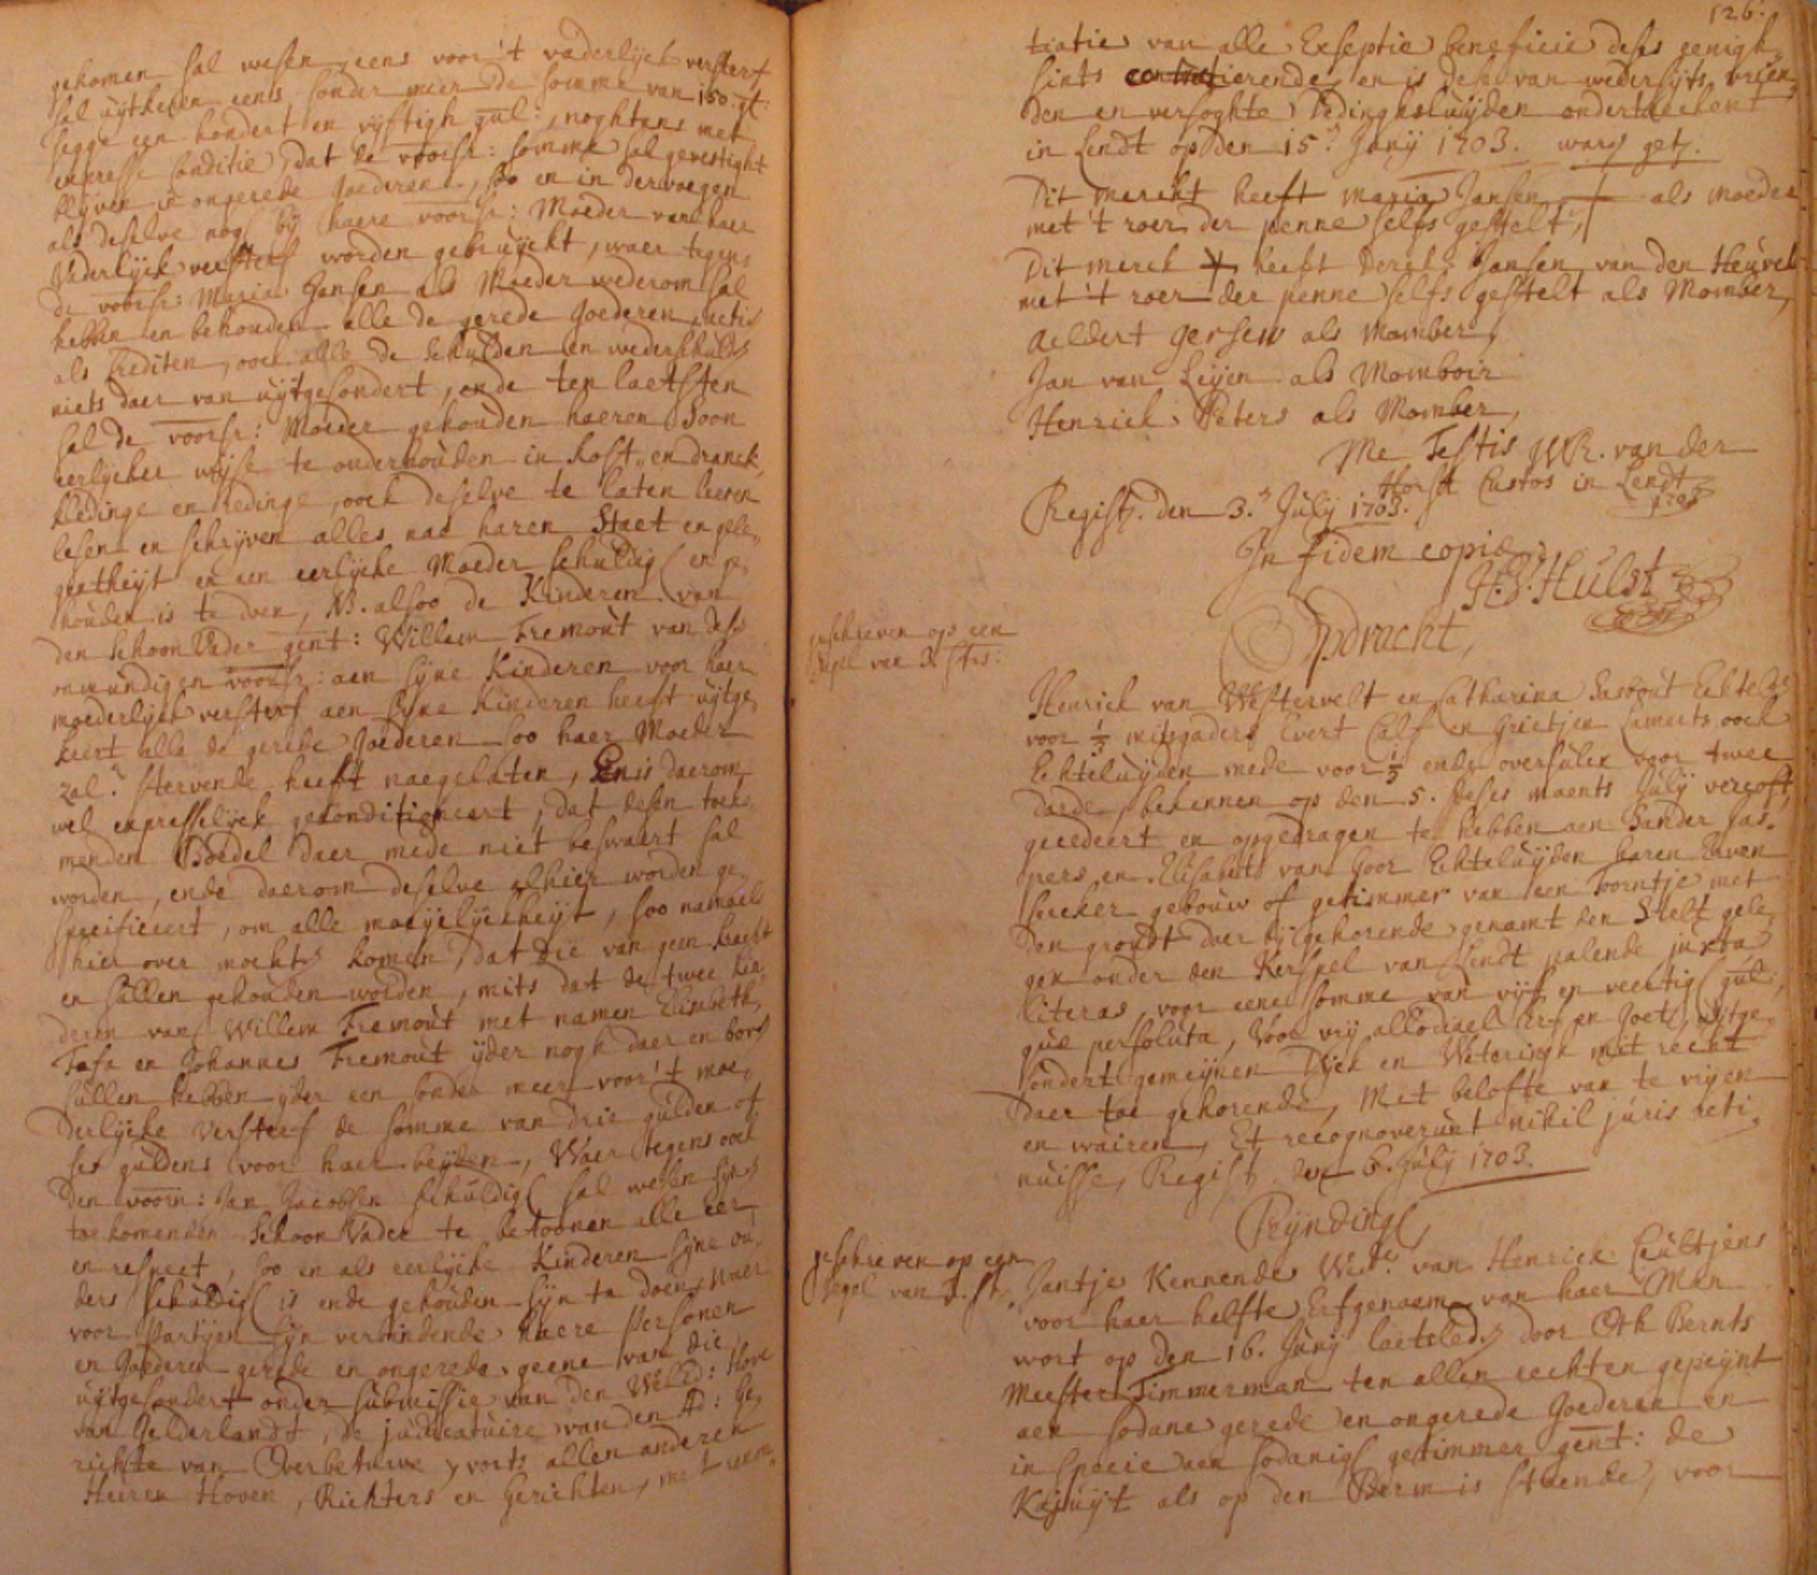 gekomen sal wesen eens voor 't vaderlyck versterf
sal uythelen eens sonder meer de somme van 150 gl:
segge een hondert en vyftigh gul: noghtans met
expresse Conditie dat de voorsr: somme sal gevestight
blyven in ongerede goederen, soo en in dervoegen
als deselve nogh bÿ haere voorsr: Moeder van haer
Vaderlyck versterf worden gebruÿckt, waer tegens
de voorsr: Maria Jansen als Moeder wederom sal
hebben en behouden alle de gerede goederen actie
als Crediten, oock alle de schulden en wederschulds
niets daer van uÿtgesondert, ende ten laetsten
sal de voorsr: Moeder gehouden haeren Soon
eerlycker wÿse te onderhouden in kost en dranck,
kledinge en redinge, oock deselve te laten leeren
lesen en schryven alles nae haren Staet en gele„
gentheÿt en een eerlycke Moeder schuldigh en ge„
houden is te doen, NB. alsoo de Kinderen van
den schoon Vader gent: Willem Tremout van dese
onmundigen voorsr: aen syne Kinderen voor haer
moederlyck versterf aen syne Kinderen heeft uÿtge„
keert alle de gerede goederen soo haer Moeder
zal.r stervende heeft naegelaten, En is daerom
wel expresselyck geconditioneert, dat desen toeko„
menden Boedel daer mede niet beswaert sal
worden, ende daerom deselve alhier worden ge„
specificeert, om alle moeÿelyckheÿt, soo namaels
hier over moghte komen, dat die van geen kracht
en sullen gehouden worden, mits dat de twee kin„
deren van Willem Tremout met namen Elisabeth
en Johannes Tremout ÿder nogh daer en bove
sullen hebben yder een sonder meer voor 't moe„
derlycke versterf de somme van drie gulden of
ses guldens voor haer beÿden, Waer tegens oock
den voorn: Jan Jacobsen schuldigh sal wesen syne
toekomenden Schoon Vader te betoonen alle eer
en respect, soo en als eerlycke Kinderen syne ou„
ders schuldigh is ende gehouden syn te doen, waer
voor Partyen syn verbindende haere Persoonen
en Goederen gerede en ongerede, geene van die
uytgesondert onder submissie van den WelEd: Hove
van Gelderlandt, de judicatuire van den Ad: Ge„
richte van Overbetuwe, vorts allen anderen
Heeren Hoven, Richters en Gerichten, met renun„
126.
tiatie van alle Exseptie beneficie deses geenigh„
sints contrarierende, en is dese van wedersÿts vrien„
den en versoghte Dedinghsluÿden ondertekent
in Lendt op den 15.e Junÿ 1703. was get.
Dit merckt heeft Maria Jansen + als moeder
met 't roer der penne selfs gestelt,
Dit merck + heeft Derck Jansen van den Heuvel
met 't roer der penne selfs gestelt als Momber,
Aeldert Gersen als Momber,
Jan van Leÿen als Momboir
Henrick Peters als Momber,
Me Teste WR. van der
Horst Custos in Lendt
1703
Regist. den 3.e July 1703.
In fidem copiæ
H. V. Hulst
geschreven op een
segel van 3 strs:
Opdracht,
Henrick van Westervelt en Catharina Sasbout Echteluÿ
voor 1/3 mitsgaders Evert Calf en Grietjen Lamerts oock
Echteluÿden mede voor 1/3 ende oversulx voor twee
darde, bekennen op den 5. deses maents Julÿ vercoft,
gecedeert en opgedragen te hebben aen Sander Jas„
pers en Elisabeth van Goor Echteluÿden haren Erven
seecker gebouw of getimmer van een Toorntje met
den grondt daer bÿ gehorende genamt den Stelt gele„
gen onder den Kerspel van Lendt palende juxta
literas, voor eene somme van vÿf en veertigh gul:
que persoluta, voor vrÿ allodiael Erf en Goet, uÿtge„
sondert gemeÿnen Dÿck en Weteringe mit recht
daer toe gehorende, Met belofte van te vrÿen
en wairen, Et recognoverunt nihil juris reti„
nuisse, Regist. den 6. Julÿ 1703.
Peÿndingh,
geschreven op een
segel van 3. st.
Jantje Kennende Wed.e van Henrick Ceultjens
voor haer helfte Erfgenaem van haer Man
wort op den 16. Junÿ laetsled. door Oth Bernts
Meester Timmerman ten allen rechten gepeÿnt
aen sodane gerede en ongerede Goederen en
in specie aen sodanigh getimmer gent: de
Kajuÿt als op den Berm is staende, voor